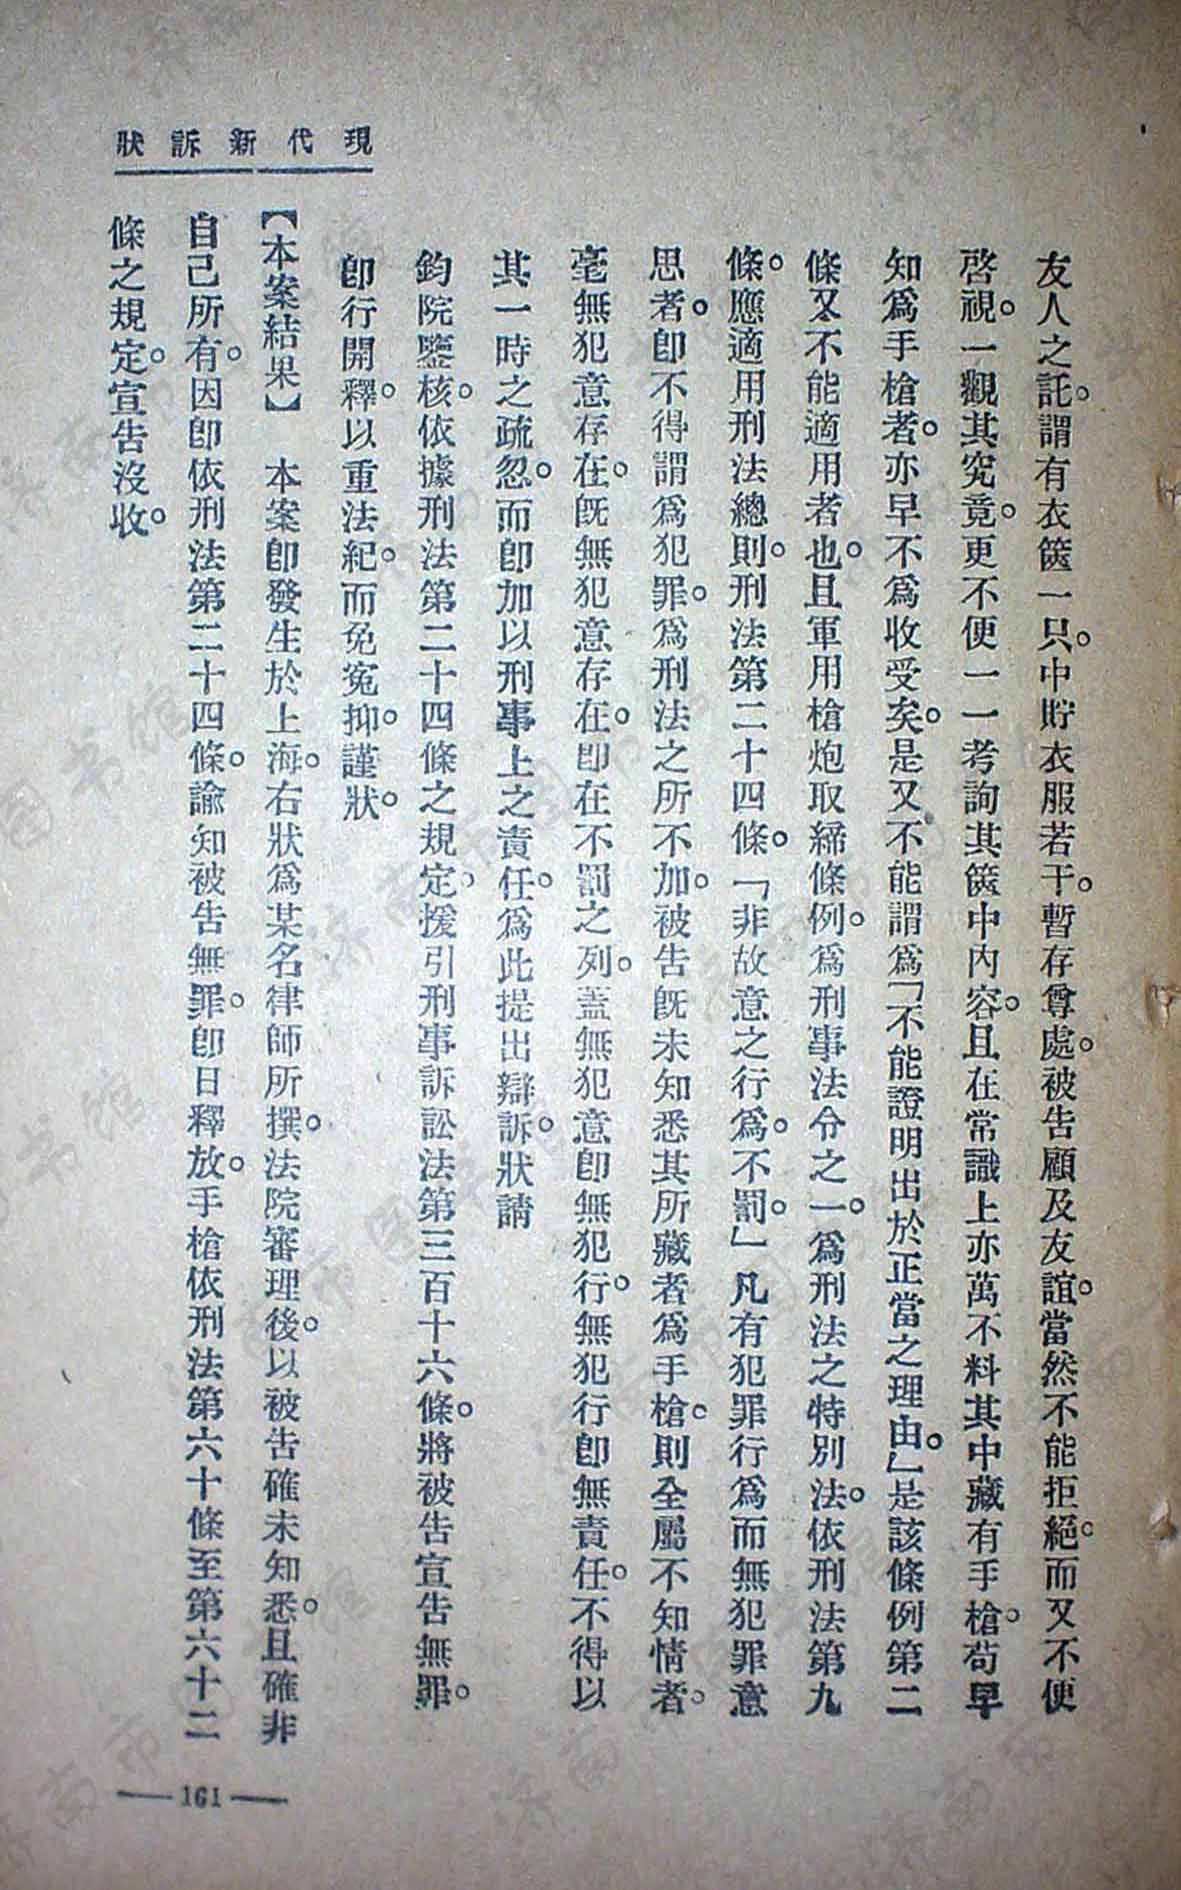 現代新訴狀
友人之託。謂有衣篋一只。中貯衣服若干。暫存尊處。被告顧及友誼。當然不能拒絕。而又不便
啓視。一觀其究竟。更不便一一考詢其篋中內容。且在常識上亦萬不料其中藏有手槍。苟早
知爲手槍者。亦早不爲收受矣。是又不能謂爲「不能證明出於正當之理由。」是該條例第二
條又不能適用者也。且軍用槍炮取締條例。爲刑事法令之一。爲刑法之特別法。依刑法第九
條。應適用刑法總則。刑法第二十四條。「非故意之行爲。不罰。」凡有犯罪行爲而無犯罪意
思者。卽不得謂爲犯罪。爲刑法之所不加。被告旣未知悉其所藏者爲手槍。則全屬不知情者。
毫無犯意存在。旣無犯意存在。卽在不罰之列。蓋無犯意卽無犯行。無犯行卽無責任。不得以
其一時之疏忽。而卽加以刑事上之責任。爲此提出辯訴。狀請
鈞院鑒核。依據刑法第二十四條之規定。援引刑事訴訟法第三百十六條。將被告宣告無罪。
卽行開釋。以重法紀。而免冤抑。謹狀。
【本案結果】　本案卽發生於上海。右狀爲某名律師所撰。法院審理後。以被告確未知悉。且確非
自己所有。因卽依刑法第二十四條。諭知被告無罪。卽日釋放。手槍依刑法第六十條至第六十二
條之規定。宣告沒收。
— 161 —
济南市图书馆